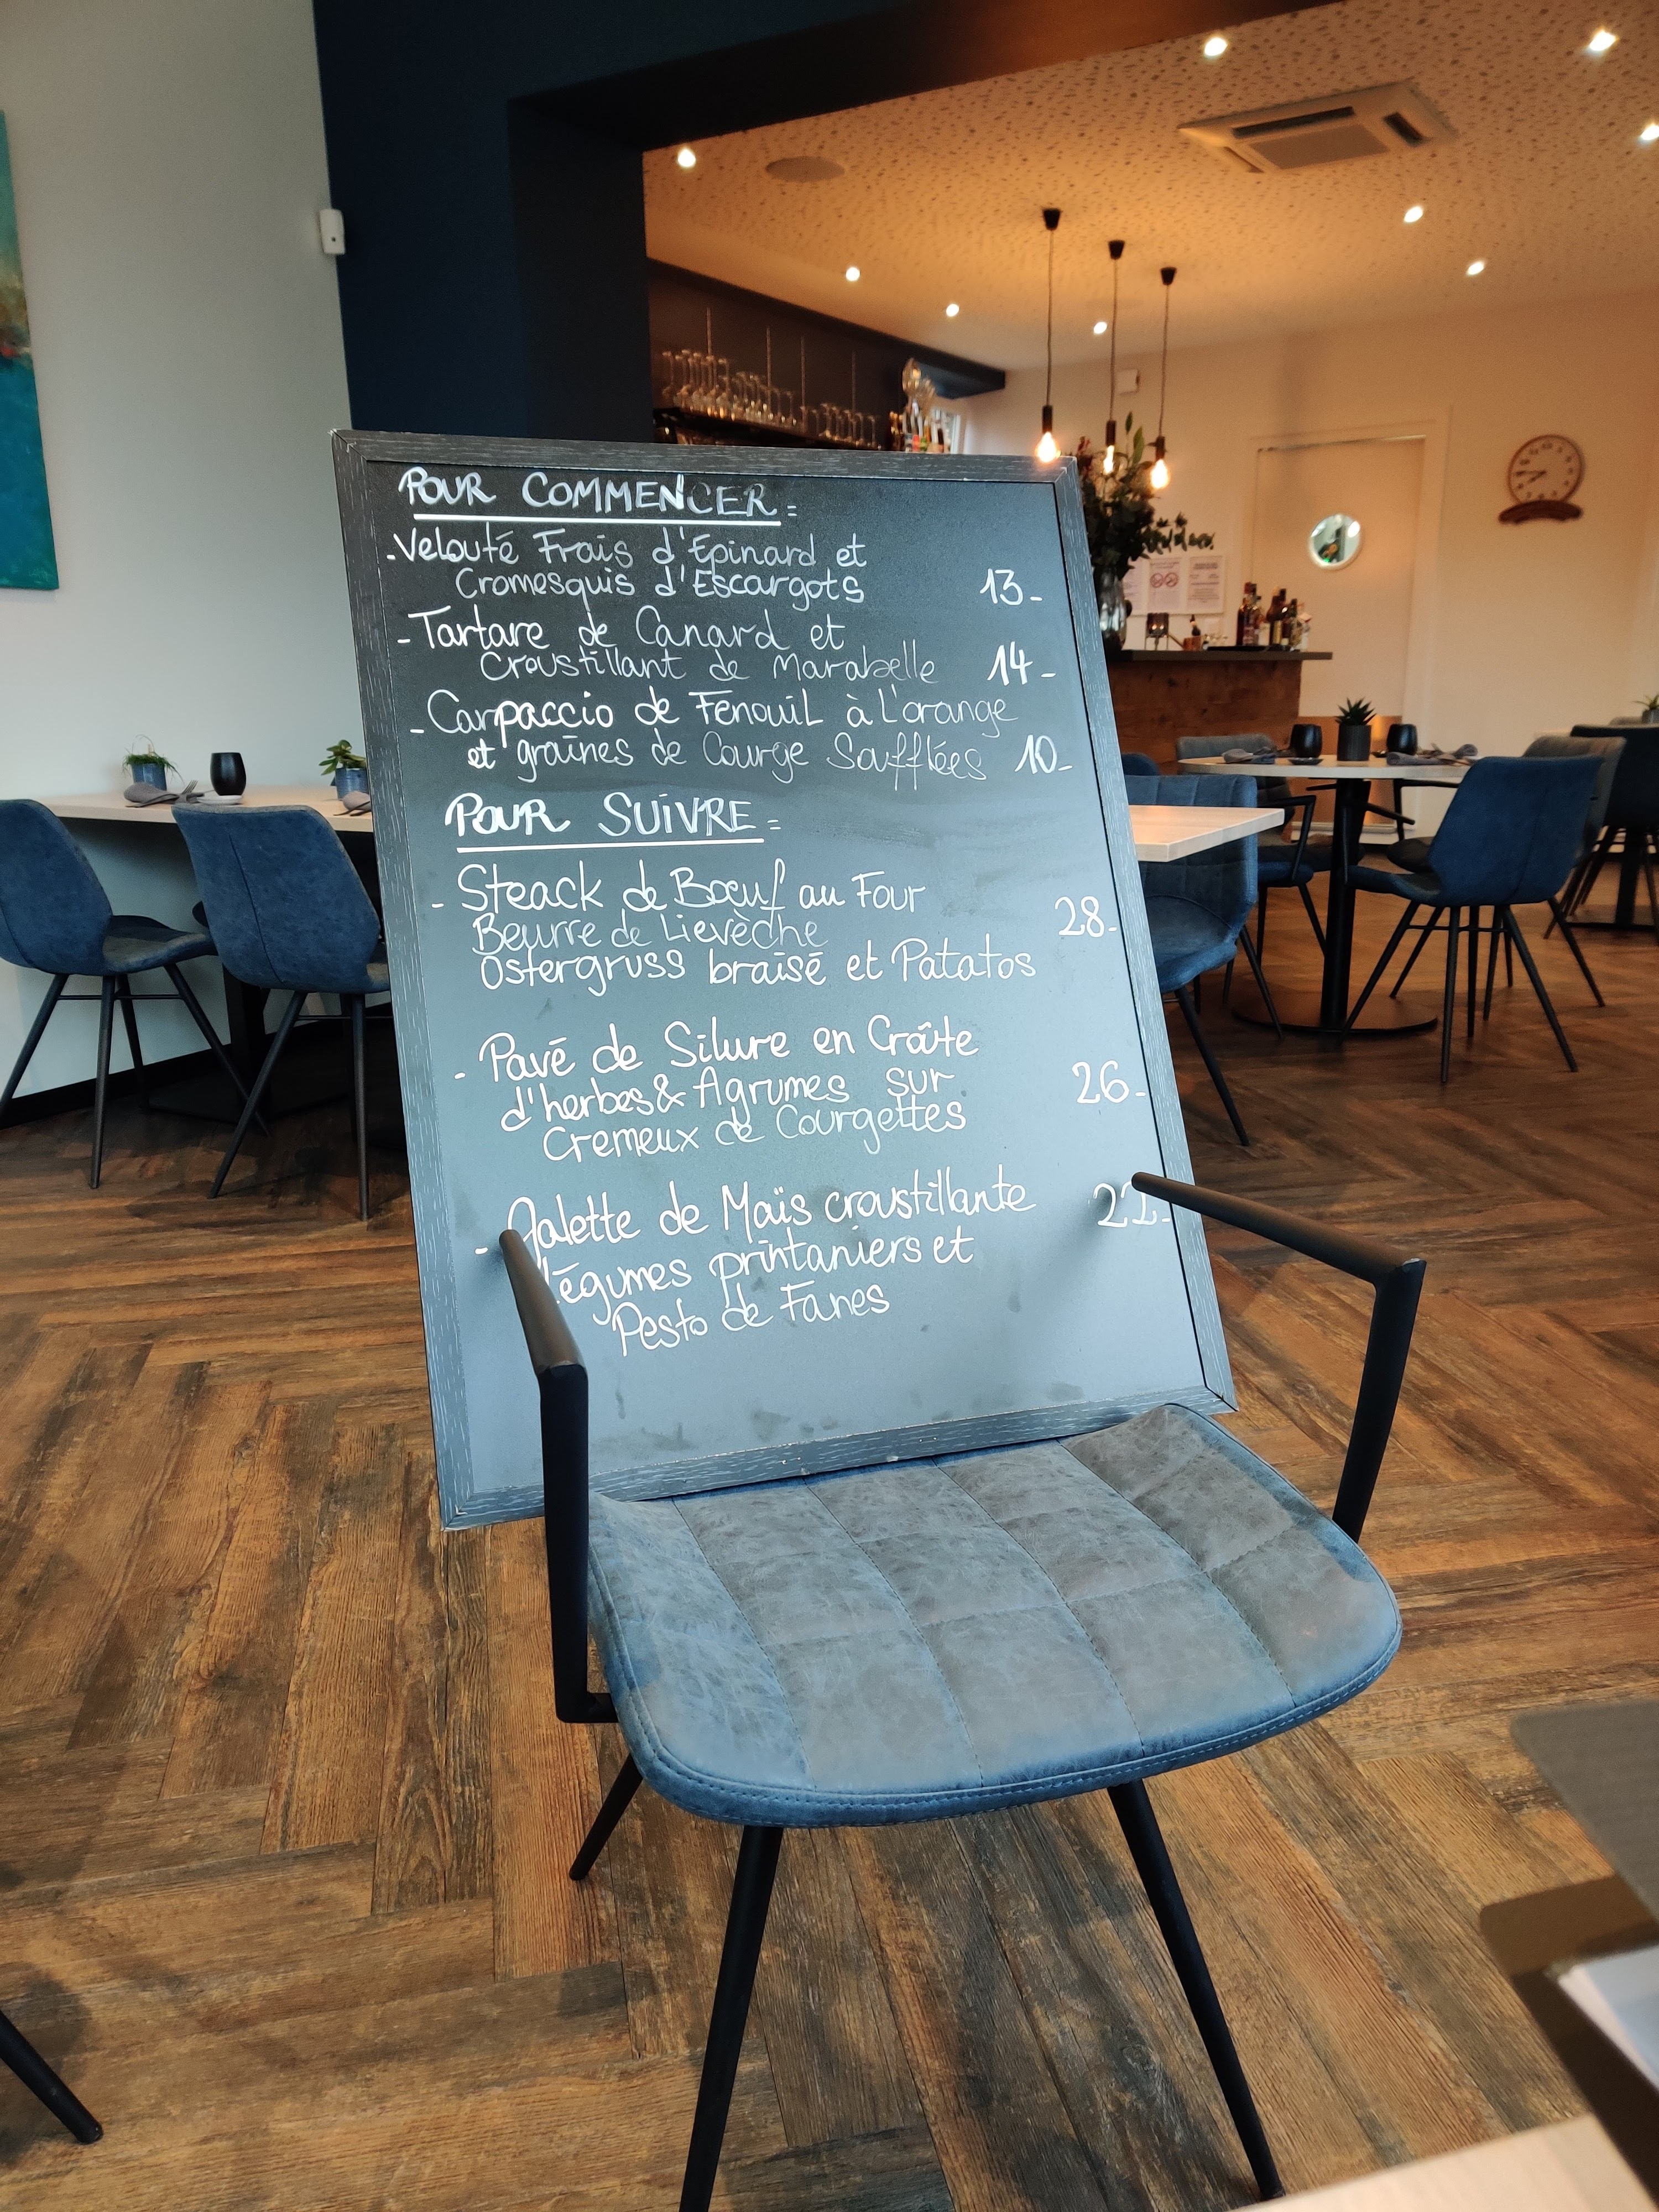 POUR COMMENCER:
-Velouté Frais d'Epinard et
Cromesquis d'Escargots 13-
-Tartare de Canard et
Croustillant de Marabelle 14-
-Carpaccio de Fenouil à L'orange
et graines de Courge Soufflées 10-
POUR SUIVRE:
- Steack de Bœuf au Four
Beurre de Lievèche 28-
Ostergruss braisé et Patatos
- Pavé de Silure en Croûte
d'herbes & Agrumes sur 26-
Cremeux de Courgettes
- Galette de Maïs croustillante
légumes printaniers et
Pesto de Fanes